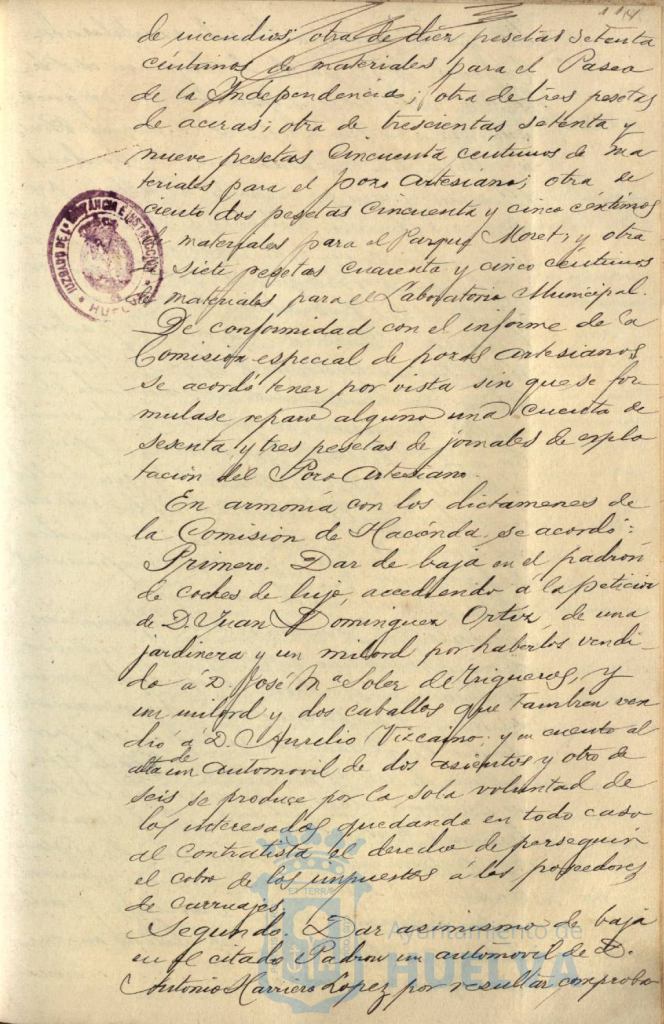 114
de incendios; otra de diez pesetas setenta
céntimos de materiales para el Paseo
de la Independencia; otra de tres pesetas
de aceras; otra de trescientas setenta y
nueve pesetas cincuenta centimos de ma
teriales para el pozo artesiano; otra de
ciento dos pesetas cincuenta y cinco céntimos
materiales para el Parque Moret; y otra
siete pesetas cuarenta y cinco centimos
materiales para el Laboratorio Municipal.
De conformidad con el informe de la
Comision especial de pozos artesianos,
se acordó tener por vista sin que se for
mulase reparo alguno una cuenta de
sesenta y tres pesetas de jornales de explo
tación del Pozo Artesiano.
En armonía con los dictamenes de
la Comision de Hacienda, se acordó:
Primero. Dar de baja en el padrón
de coches de lujo, accediendo a la peticion
de D. Juan Dominguez Ortiz, de una
jardinera y un milord por haberlos vendi-
do á D. José Mª Soler de Trigueros, y
un milord y dos caballos que tambien ven
dió á D. Aurelio Vizcaino: y en cuento al
alta de un automovil de dos asientos y otro de
seis se produce por la sola voluntad de
los interesados quedando en todo caso
al Contratista el derecho de perseguir
el cobro de los impuestos á los poseedores
de carruajes.
Segundo. Dar asimismo de baja
en el citado Padron un automóvil de D.
Antonio Harriero Lopez por resultar comproba
JUZGADO DE 1ª INSTANCIA E INSTRUCCION
HUELVA
Ayuntamiento de
HUELVA